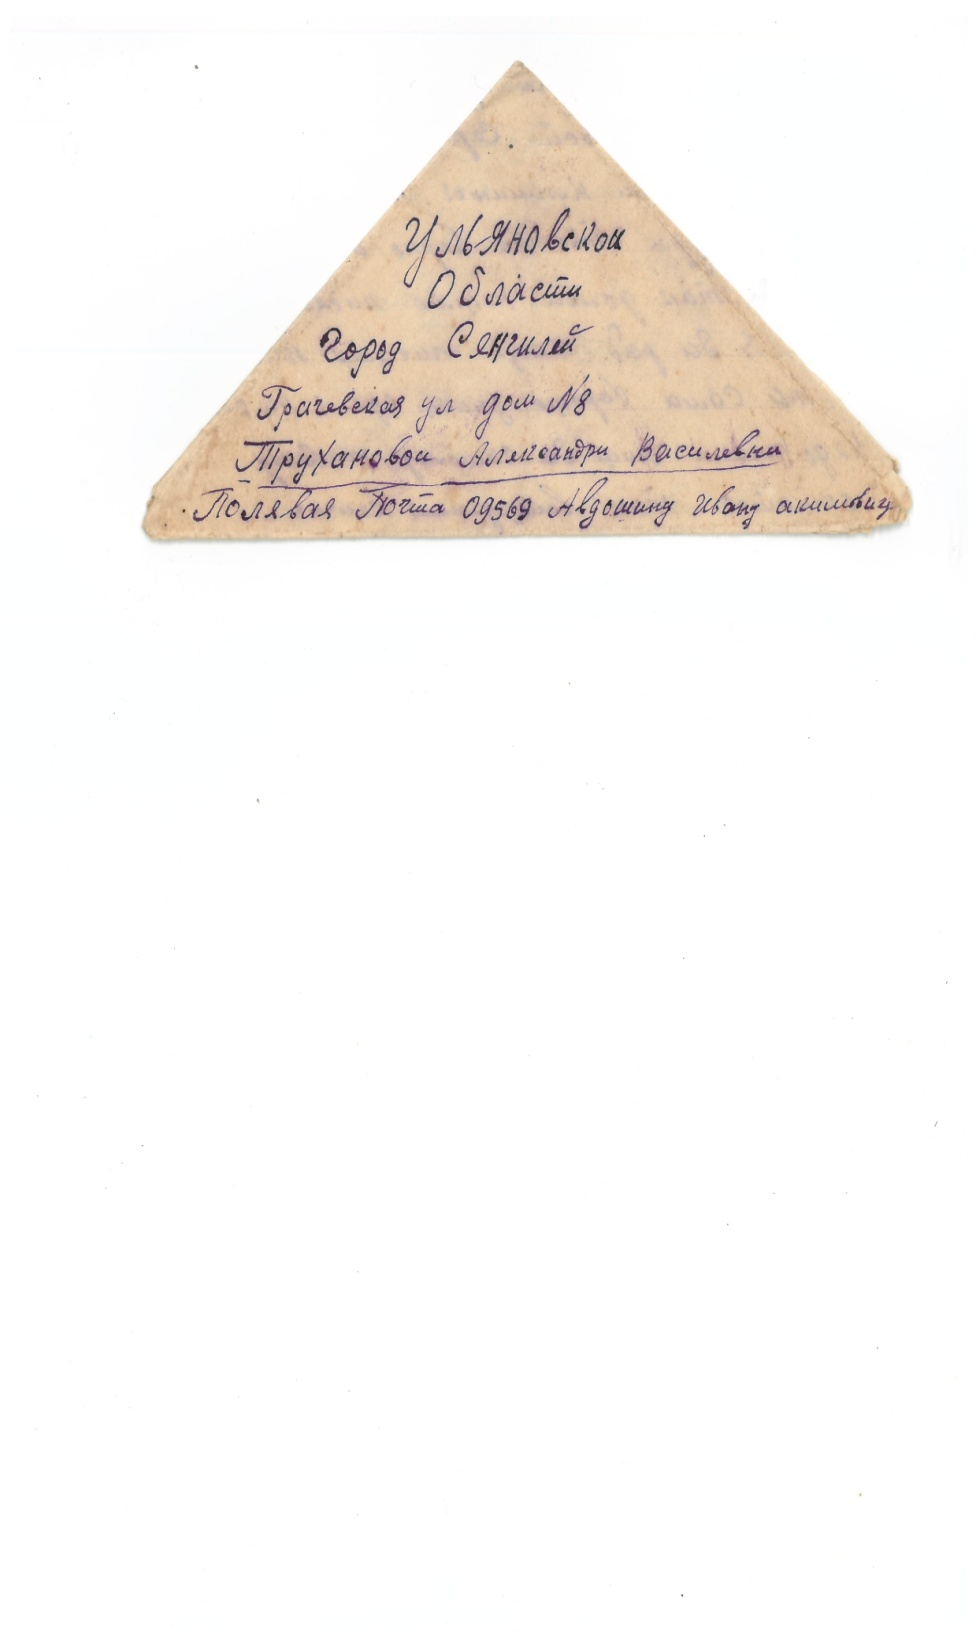 Ульяновскои
Области
Город Сянгилей
Грачевская ул дом №8
Трухановои Александри Василевни
Полявая Почта 09569 Авдошину Ивану акимовичу